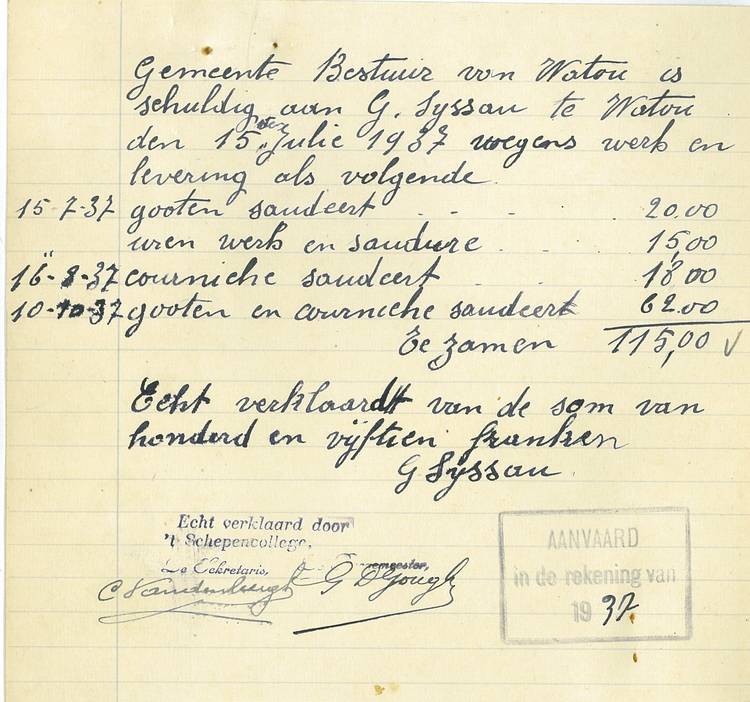 Gemeente Bestuur van Watou is
schuldig aan G. Syssau te Watou
den 15den Julie 1937 wegens werk en
levering als volgende
15-7-37 gooten saudeert . . . . 20.00
" uren werk en saudure . . . 15,00
16-8-37 courniche saudeert . . . 18,00
10-10-37 gooten en courniche saudeert 62.00
Te zamen 115,00 √
Echt verklaardt van de som van
honderd en vijftien franken
G Syssau
Echt verklaard door
't Schepencollege,
De Sekretaris,
AANVAARD
in de rekening van
1937